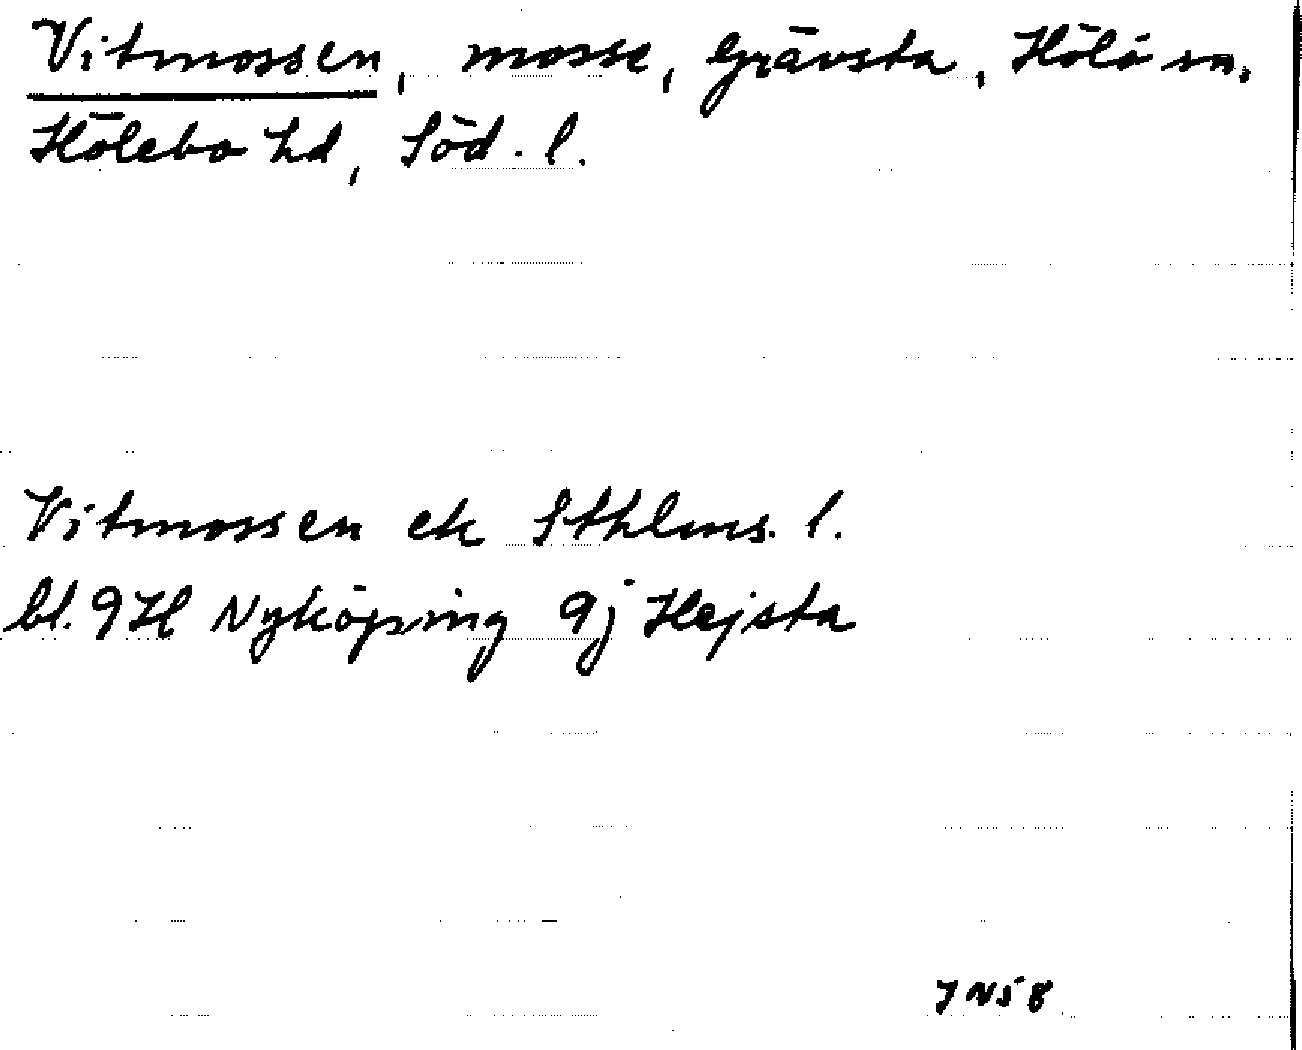 Vitmossen, mosse, Grävsta, Hölö sn,
Hölebo hd, Söd. l.
Vitmossen ek Sthlms. l.
bl. 9H Nyköping 9j Hejsta
JN58